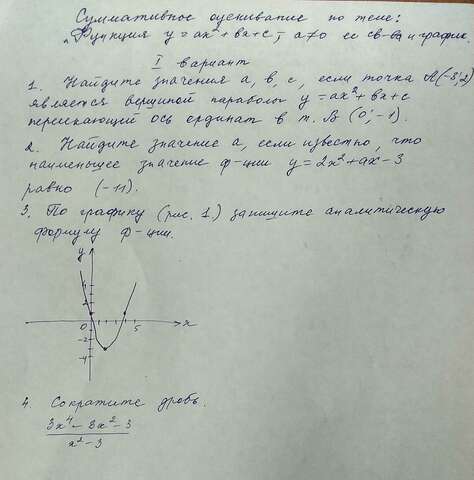 Суммативное оценивание по теме:
„Функция y = ax² + bx + c, a≠0 ее св-ва и график.
I вариант
1. Найдите значения a, b, c, если точка A(-3; 2)
является вершиной параболы y = ax² + bx + c
пересекающий ось ординат в т. B (0; -1).
2. Найдите значение a, если известно, что
наименьшее значение ф-ции y = 2x² + ax - 3
равно (-11).
3. По графику (рис. 1) запишите аналитическую
формулу ф-ции.
y
4
2
0 5 x
-2
-4
4. Сократите дробь.
3x⁴ - 8x² - 3
x² - 3